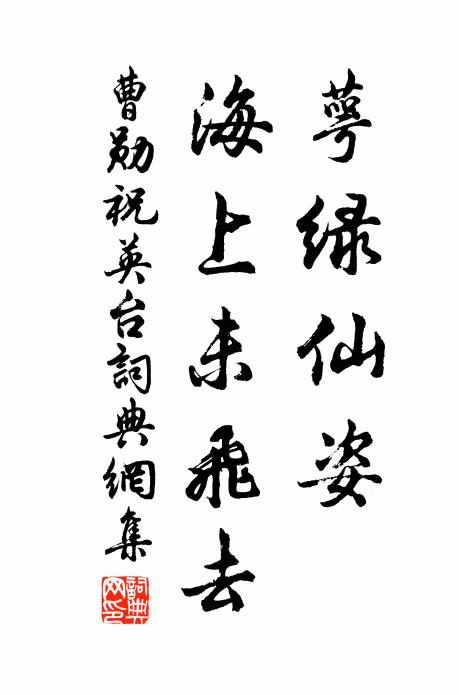 萼绿仙姿
海上未飛去
曹勛祝英台詞典網集
詞典网印